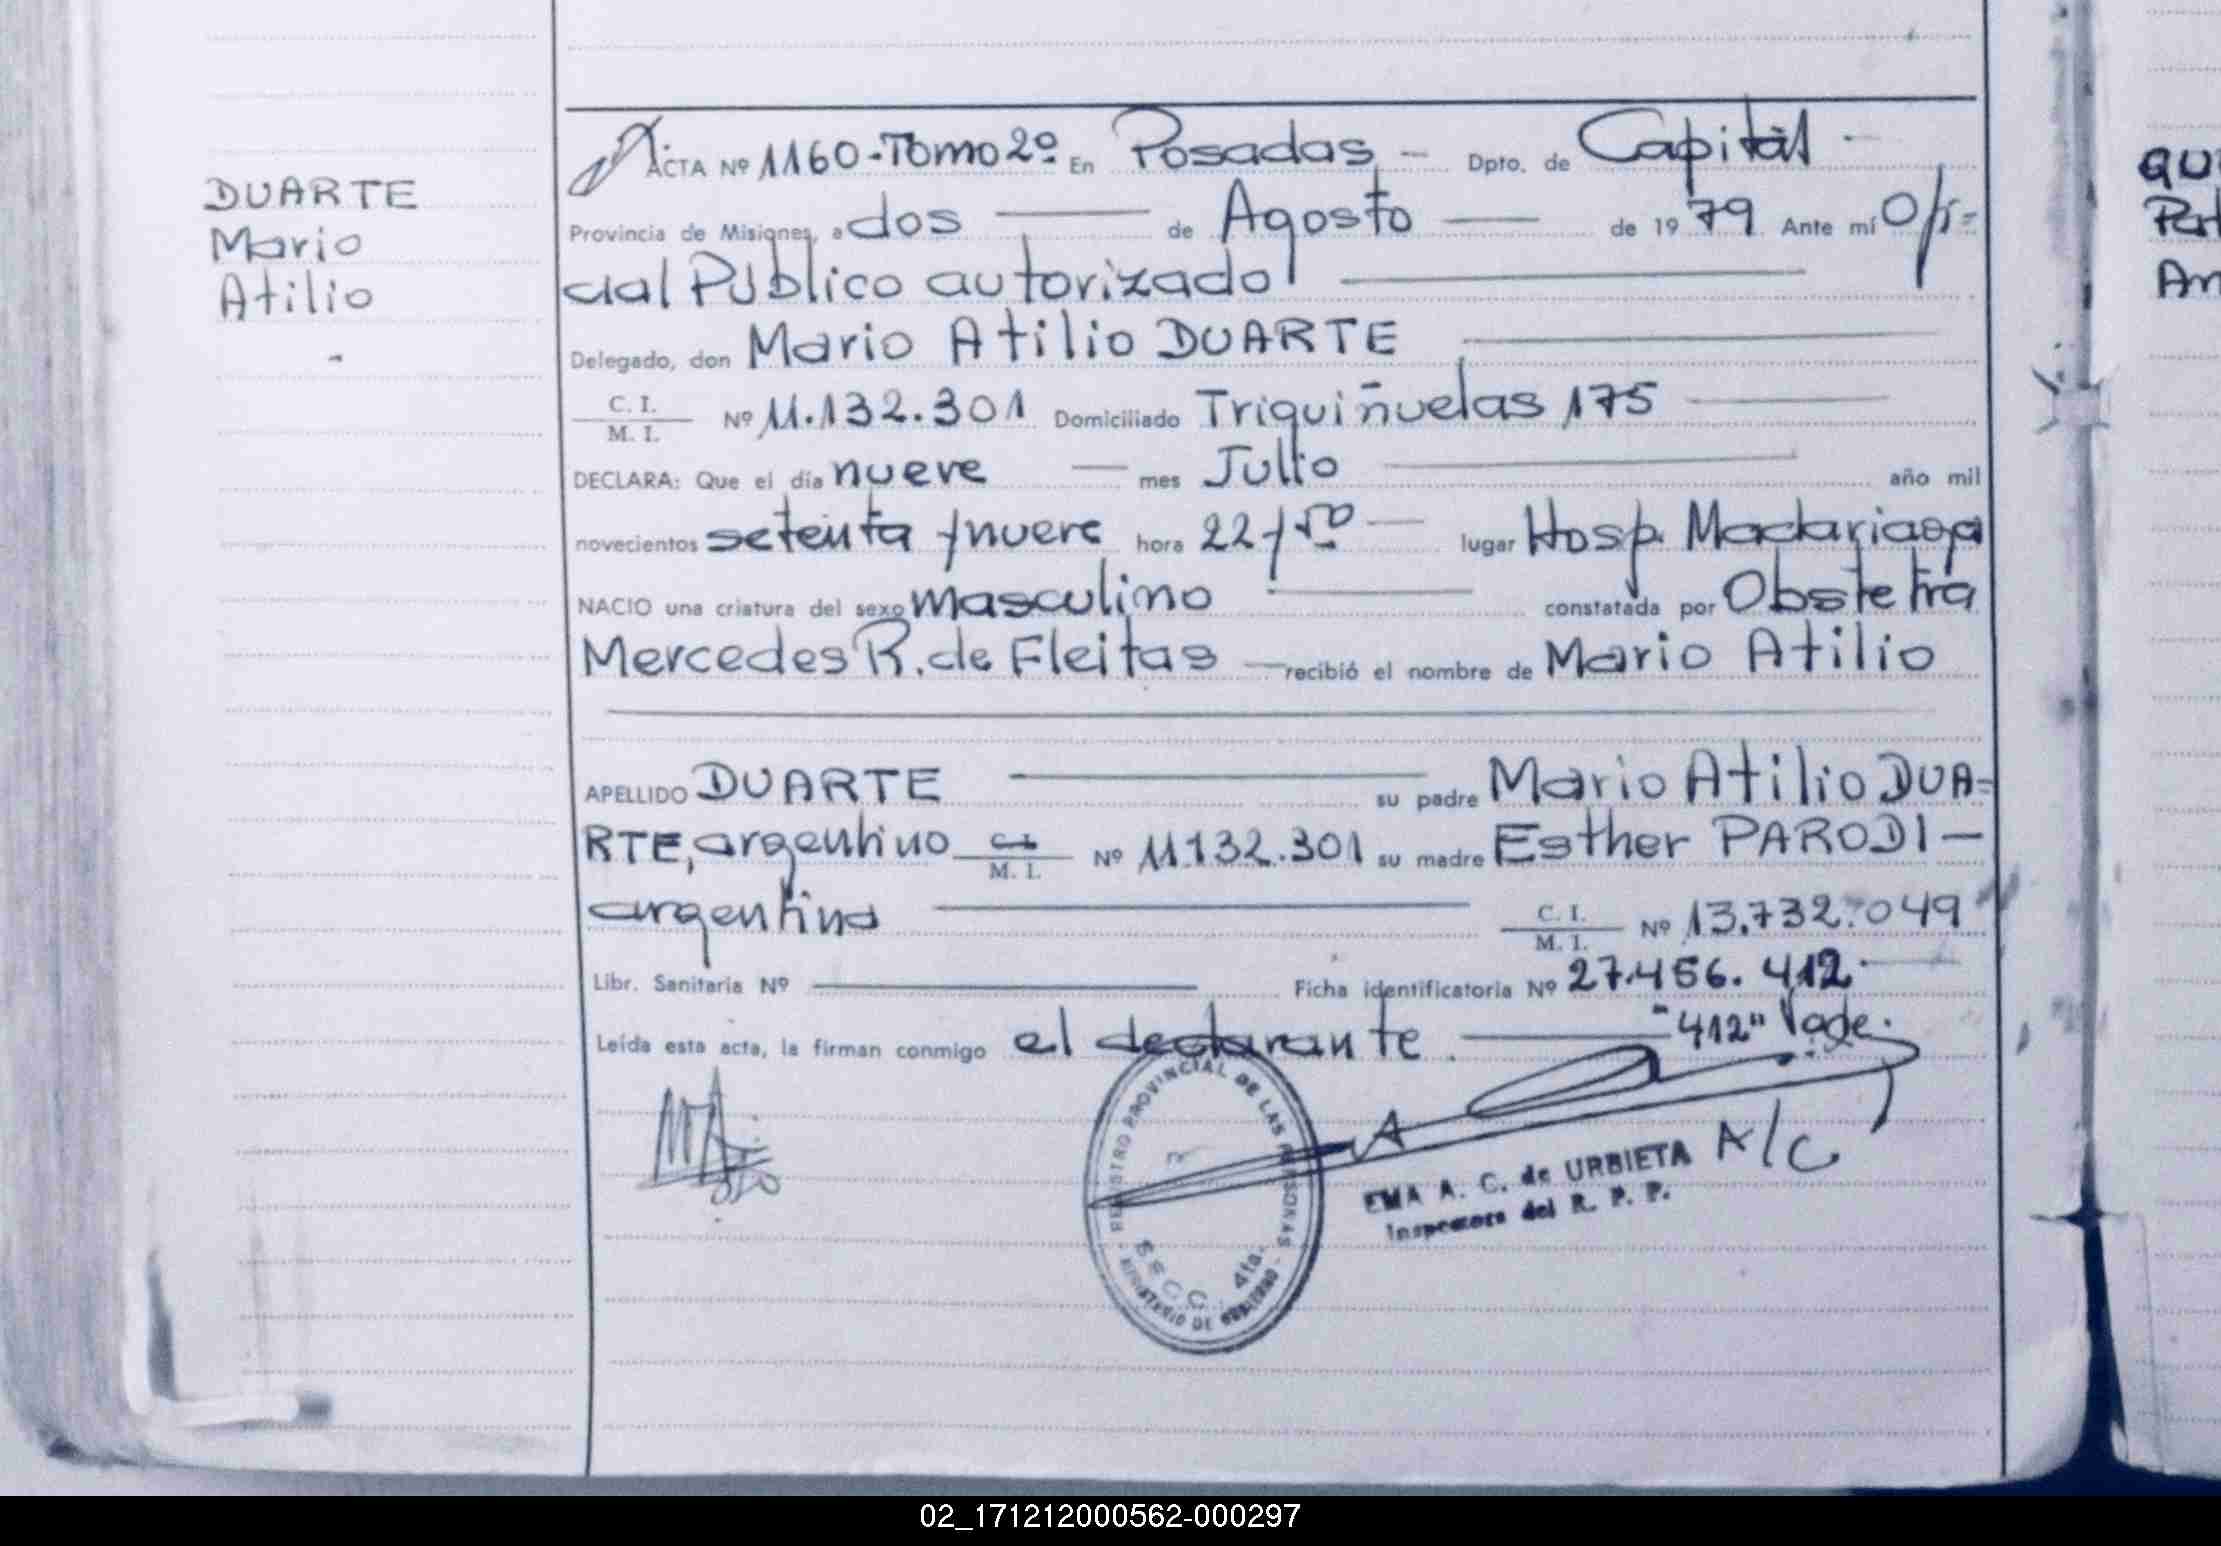 DUARTE
Mario
Atilio
ACTA Nº 1160-Tomo 2º En Posadas - Dpto. de Capital -
Provincia de Misiones, a dos de Agosto de 1979 Ante mí Ofi=
cial Público autorizado
Delegado, don Mario Atilio DUARTE
C. I.
M. I. Nº 11.132.301 Domiciliado Triquiñuelas 175
DECLARA: Que el día nueve mes Julio año mil
novecientos setenta y nueve hora 22 y 50 lugar Hosp. Madariaga
NACIO una criatura del sexo masculino constatada por Obstetra
Mercedes R. de Fleitas recibió el nombre de Mario Atilio
APELLIDO DUARTE su padre Mario Atilio DUA=
RTE, argentino C.I.
M. I. Nº 11.132.301 su madre Esther PARODI -
argentina C. I.
M. I. Nº 13.732.049
Libr. Sanitaria Nº Ficha identificatoria Nº 27.456.412.
Leída esta acta, la firman conmigo el declarante. "412" Vale.
REGISTRO PROVINCIAL DE LAS PERSONAS
SECC. 4ta.
EMA A. C. de URBIETA A/C
Inspectora del R. P. P.
QU
An
02_171212000562-000297